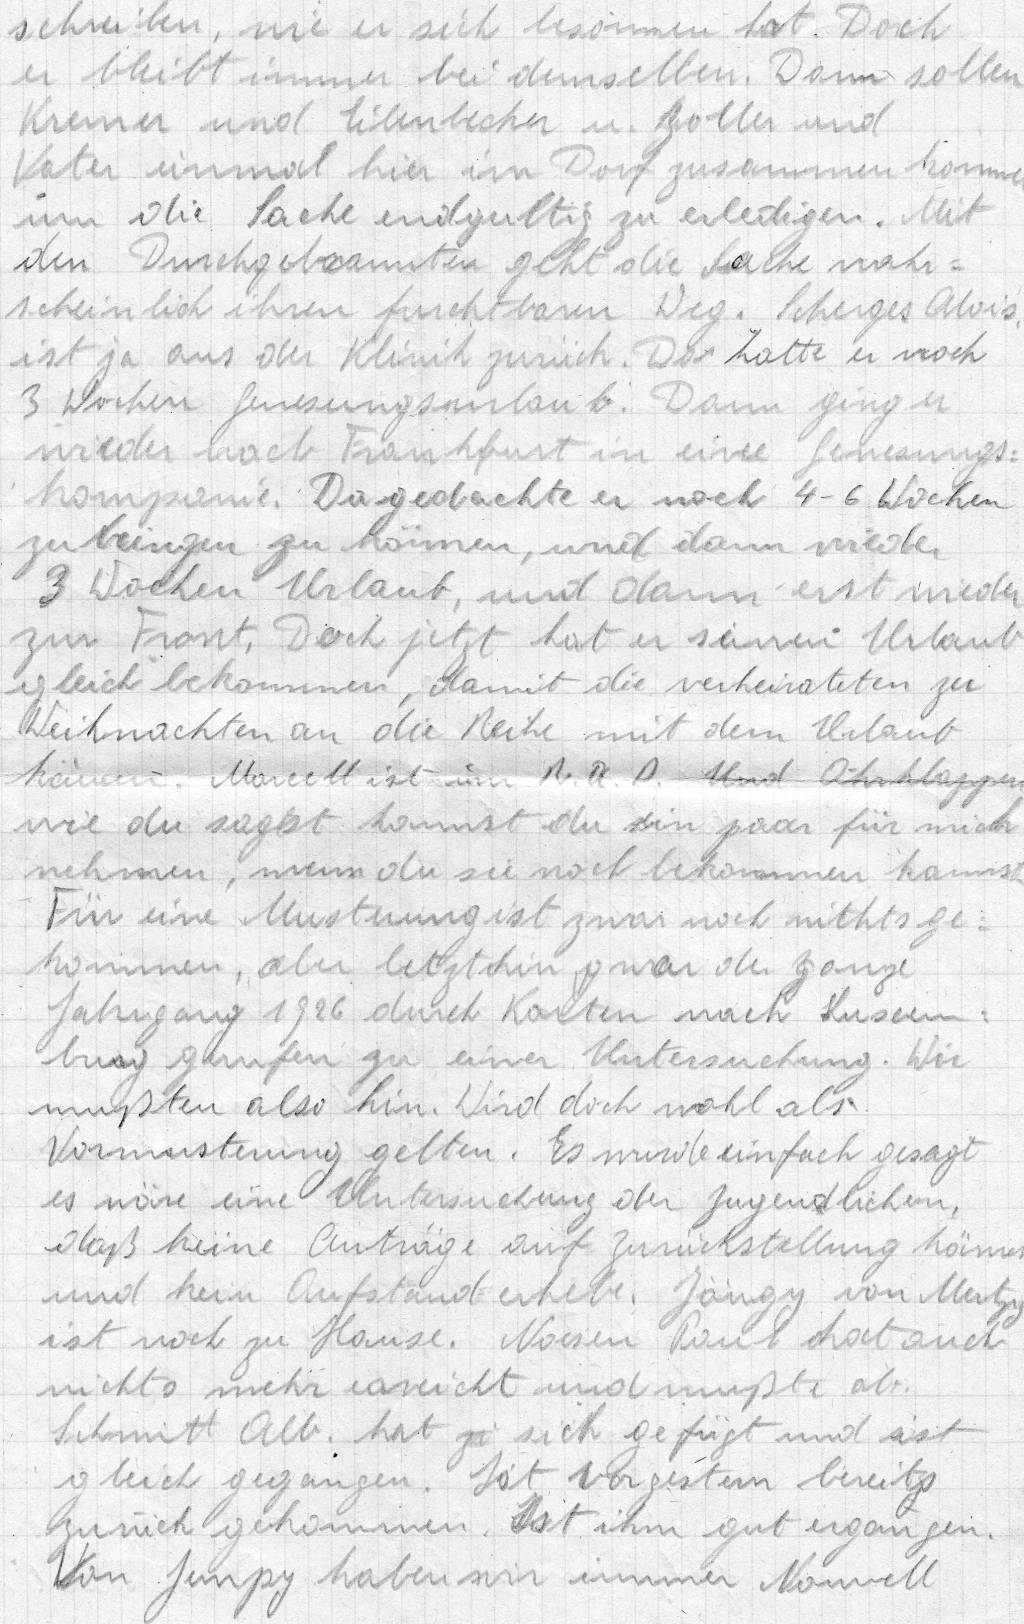 schreiben, wie er sich besonnen hat. Doch
er bleibt immer bei demselben. Dann sollen
Kremer und Eilenbecker u. Zoller und
Vater einmal hier im Dorf zusammen kommen
um die Sache endgultig zu erledigen. Mit
den Durchgebrannten geht die Sache wahr=
scheinlich ihren furchtbaren Weg. Scherges Alois,
ist ja aus der Klinik zurück. Da hatte er noch
3 Wochen Genesungsurlaub. Dann ging er
wieder nach Frankfurt in eine Genesungs=
kompanie. Da gedachte er noch 4-6 Wochen
zu bringen zu können, und dann wieder
3 Wochen Urlaub, und dann erst wieder
zur Front. Doch jetzt hat er seinen Urlaub
gleich bekommen, damit die verheirateten zu
Weihnachten an die Reihe mit dem Urlaub
kämen. Marcell ist im R. A. D. Und Ohrklappen
wie du sagst kannst du ein paar für mich
nehmen, wenn du sie noch bekommen kannst.
Für eine Musterung ist zwar noch nichts ge=
kommen, aber letzthin war der ganze
Jahrgang 1926 durch Karten nach Luxem=
burg gerufen zu einer Untersuchung. Wir
mußten also hin. Wird doch wohl als
Vormusterung gelten. Es wurde einfach gesagt
es wäre eine Untersuchung der Jugendlichen,
daß keine Anträge auf Zurückstellung kämen
und kein Aufstand erhebe. Jängy von Mertzig
ist noch zu Hause. Noesen Paul hat auch
nichts mehr erreicht und mußte ab.
Schmitt Alb. hat sich gefügt und ist
gleich gegangen. Ist vorgestern bereits
zurück gekommen. Ist ihm gut ergangen.
Von Jempy haben wir immer Nouvell